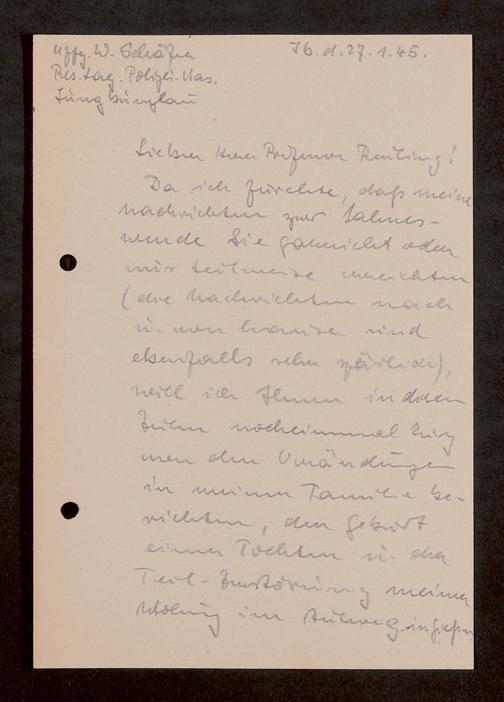 Uffz. W. Schäfer
Res. Laz. Polizei-Kas.
Jungbunzlau
Jb. d. 27.1.45.
Lieber Herr Professor Reuling!
Da ich fürchte, daß meine
Nachrichten zur Jahres-
wende Sie garnicht oder
nur teilweise erreichten
(die Nachrichten nach
u. von hause sind
ebenfalls sehr spärlich),
will ich Ihnen in diesen
Zeilen nocheinmal
von den Umändungen
in meiner Familie be-
richten, der Geburt
einer Tochter u. der
Teil-Zerstörung meiner
Wohng im Gießen